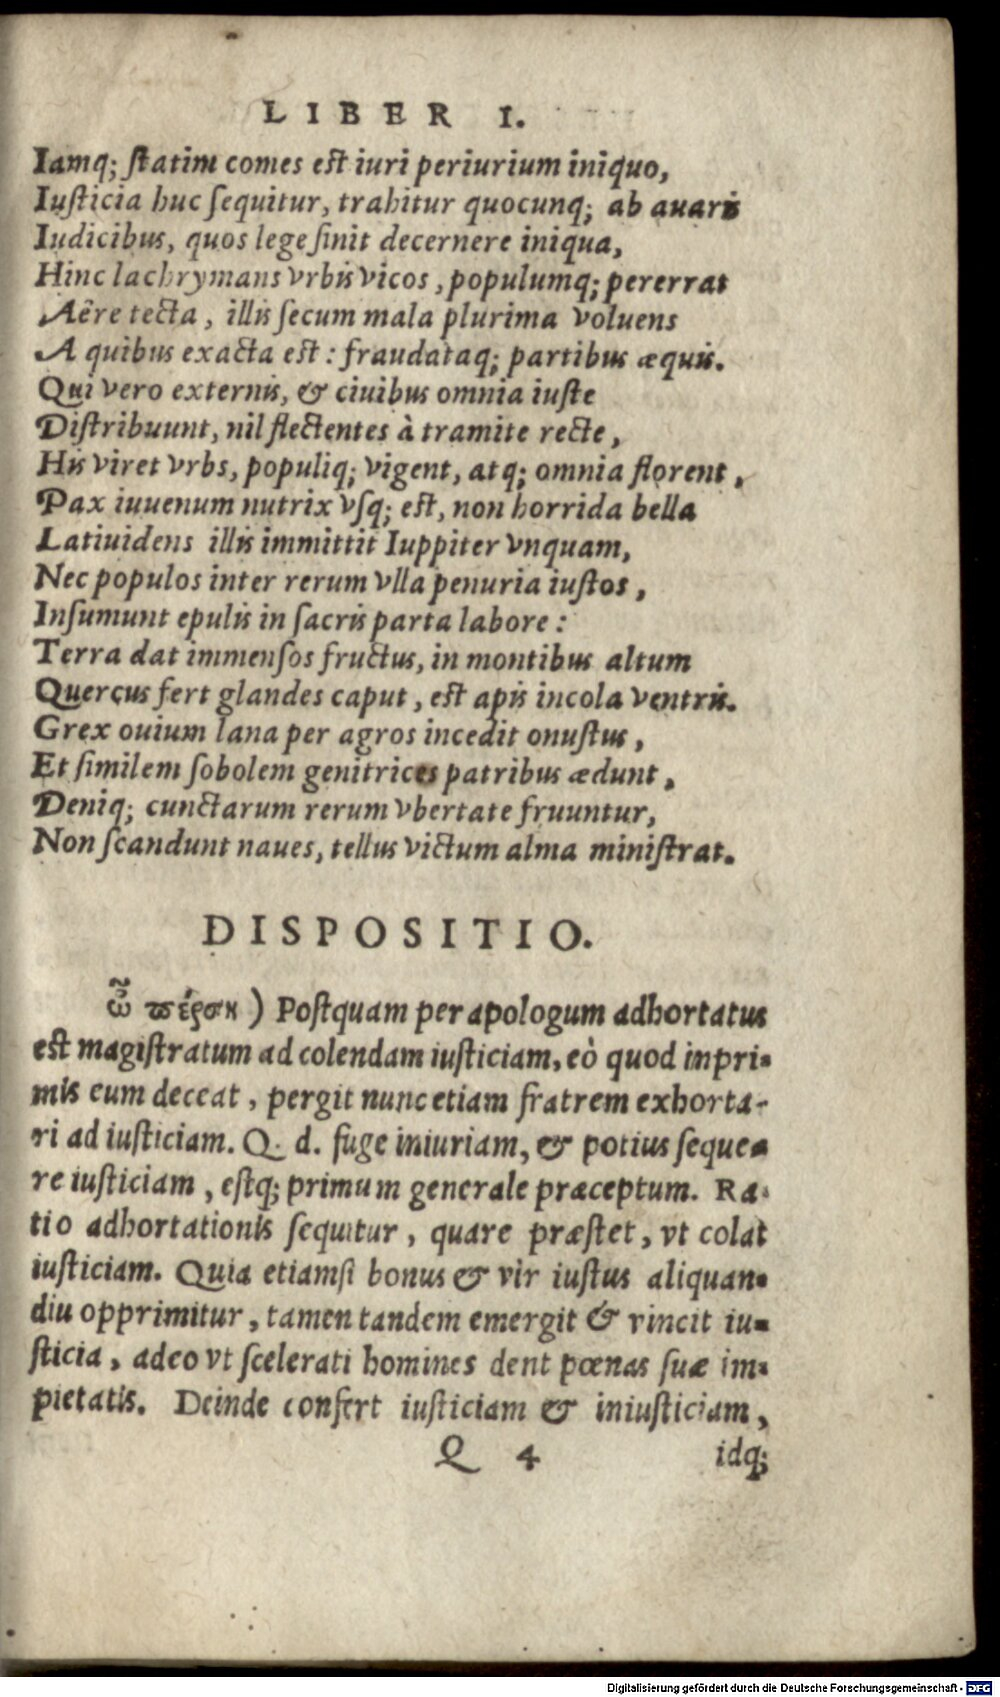 LIBER I.
Iamq; ſtatim comes eſt iuri periurium iniquo,
Iuſticia huc ſequitur, trahitur quocunq; ab auaris
Iudicibus, quos lege ſinit decernere iniqua,
Hinc lachrymans vrbis vicos, populumq; pererrat
Aëre tecta, illis ſecum mala plurima voluens
A quibus exacta eſt: fraudataq; partibus æquis.
Qui vero externis, & ciuibus omnia iuſte
Diſtribuunt, nil flectentes à tramite recte,
His viret vrbs, populiq; vigent, atq; omnia florent,
Pax iuuenum nutrix vſq; eſt, non horrida bella
Latiuidens illis immittit Iuppiter vnquam,
Nec populos inter rerum vlla penuria iuſtos,
Inſumunt epulis in ſacris parta labore:
Terra dat immenſos fructus, in montibus altum
Quercus fert glandes caput, eſt apis incola ventris.
Grex ouium lana per agros incedit onuſtus,
Et ſimilem ſobolem genitrices patribus ædunt,
Deniq; cunctarum rerum vbertate fruuntur,
Non ſcandunt naues, tellus victum alma miniſtrat.
DISPOSITIO.
ὦ πέρση) Poſtquam per apologum adhortatus
eſt magiſtratum ad colendam iuſticiam, eò quod inpri-
mis eum deceat, pergit nunc etiam fratrem exhorta-
ri ad iuſticiam. Q. d. fuge iniuriam, & potius ſeque-
re iuſticiam, eſtq; primum generale præceptum. Ra-
tio adhortationis ſequitur, quare præſtet, vt colat
iuſticiam. Quia etiamſi bonus & vir iuſtus aliquan-
diu opprimitur, tamen tandem emergit & vincit iu-
ſticia, adeo vt ſcelerati homines dent pœnas ſuæ im-
pietatis. Deinde confert iuſticiam & iniuſticiam,
Q 4 idq;
Digitalisierung gefördert durch die Deutsche Forschungsgemeinschaft - DFG